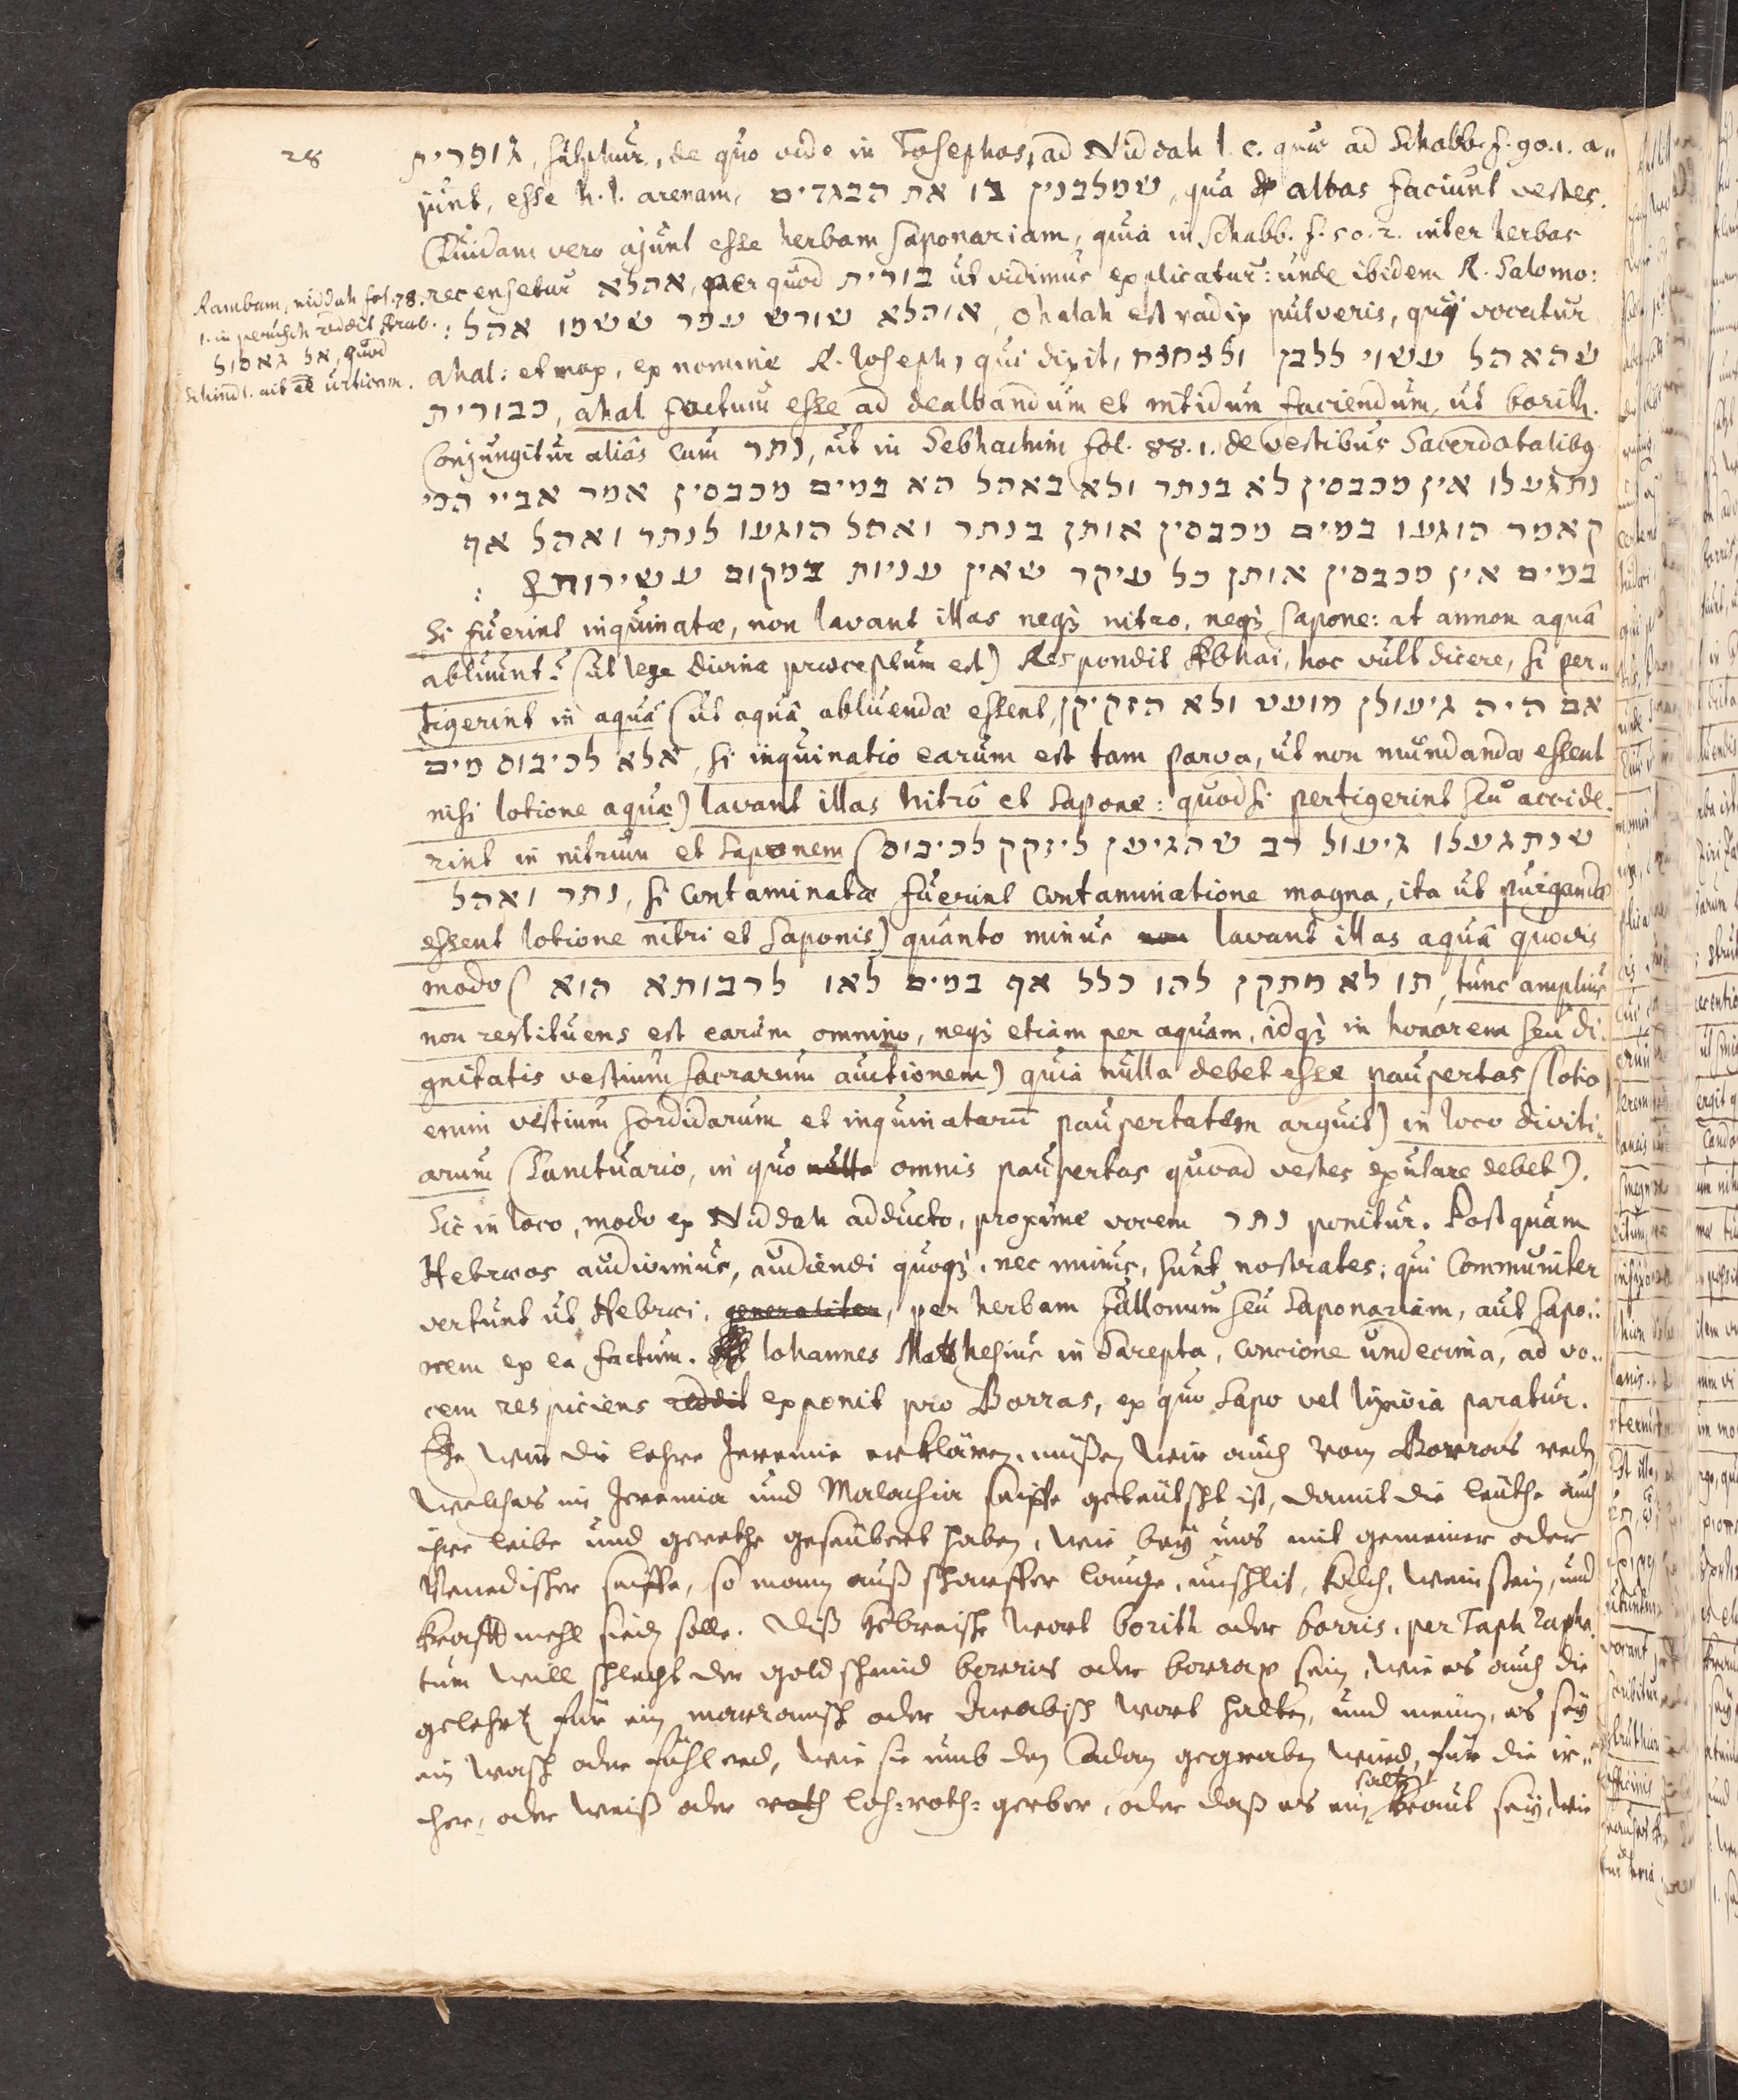 28
גופרית, sulphur, de quo vide in Tosephos, ad Niddah l. c. quæ ad Schabb. f. 90.1. a=
junt, esse h. l. arenam, שמלבנין בו את הבגדים, qua albas faciunt vestes.
Quidam vero ajunt esse herbam saponariam, quia in Schabb. f. 50. 2. inter herbas
recensetur אהלא, per quod בורית ut vidimus explicatur: unde ibidem R. Salomo:
אוהלא שורש עפר ששמו אהל:, ohalah est radix pulveris, qui vocatur
ahal: et mox, ex nomine R. Joseph, qui dixit, שהאהל עשוי ללבן ולצחצח
כבורית, ahal factum esse ad dealbandum et nitidum faciendum, ut borith.
Conjungitur aliâs cum נתר, ut in Sebhachim fol. 88. 1. de vestibus Sacerdotalibꝰ
נתגעלו אין מכבסין לא בנתר ולא באהל הא במים מכבסין אמר אביי הכי
קאמר הוגעו במים מכבסין אותן בנתר ואהל הוגעו לנתר ואהל אף
במים אין מכבסין אותן כל עיקר שאין עניות במקום עשירות :
Si fuerint inquinatæ, non lavant illas neqꝫ nitro, neqꝫ sapone: at annon aquâ
abluunt? (ut lege divina præceptum est) Respondit Abhai, hoc vult dicere, si per=
tigerint in aquâ (ut aquâ abluendæ essent, אם היה גיעולן מועט ולא הזקיקן
אלא לכיבוס מים, si inquinatio earum est tam parva, ut non mundandæ essent
nisi lotione aquæ) lavant illas nitrô et sapone: quodsi pertigerint seu accide=
rint in nitrum et saponem (שנתגעלו גיעול רב שהגיען ליזקק לכיבוס
נתר ואהל, si contaminatæ fuerint contaminatione magna, ita ut purgandæ
essent lotione nitri et saponis) quanto minus non lavant illas aquâ quovis
modo (תו לא מתקן להו כלל אף במים לאו לרבותא הוא, tunc amplius
non restituens est earum omnino, neqꝫ etiam per aquam, idqꝫ in honorem seu di=
gnitatis vestium sacrarum auctionem) quia nulla debet esse paupertas (lotio
enim vestium sordidarum et inquinatarū paupertatem arguit) in loco diviti=
arum (Sanctuario, in quo nulla omnis paupertas quoad vestes exulare debet).
Sic in loco, modo ex Niddah adducto, proxime vocem נתר ponitur. Postquam
Hebræos audivimus, audiendi quoqꝫ, nec minus, sunt nostrates; qui Communiter
vertunt ut Hebræi, generaliter, per herbam fullonum seu saponariam, aut sapo=
nem ex ea factum. Johannes Matthesius in Sarepta, concione undecima, ad vo=
cem respiciens reddit exponit pro Borras, ex quo sapo vel lixivia paratur.
Ehe wir die lehre Jeremie erklären, müßen wir auch vom Borras reden,
welches in Jeremia und Malachia seiffe geteutscht ist, damit die leuthe auch
ihre leibe und gerethe gesäubert haben, wie bey uns mit gemeiner oder
Venedischer seiffe, so man auß scharffer lauge, unschlit, kalch, weinstein, und
krafftmehl sieden solle. Diß hebreische wort borith oder borris, per Taph rapha=
tum will schlecht der goldschmid borris oder borrax sein, wie es auch die
gelehrten für ein marranisch oder Arabisch wort halten, und meinen, es sey
ein wasch oder fühl erd, wie sie umb den Adan gegraben wird, für die ir=
cher, oder weiß oder roth loh=roth=gerber, oder daß es ein saltz kraut sey, wie
Rambam, niddah fol. 78.
1. in perusch reddit Arab.
אל גאסול, quod
Schindl. ait ēē urticam.